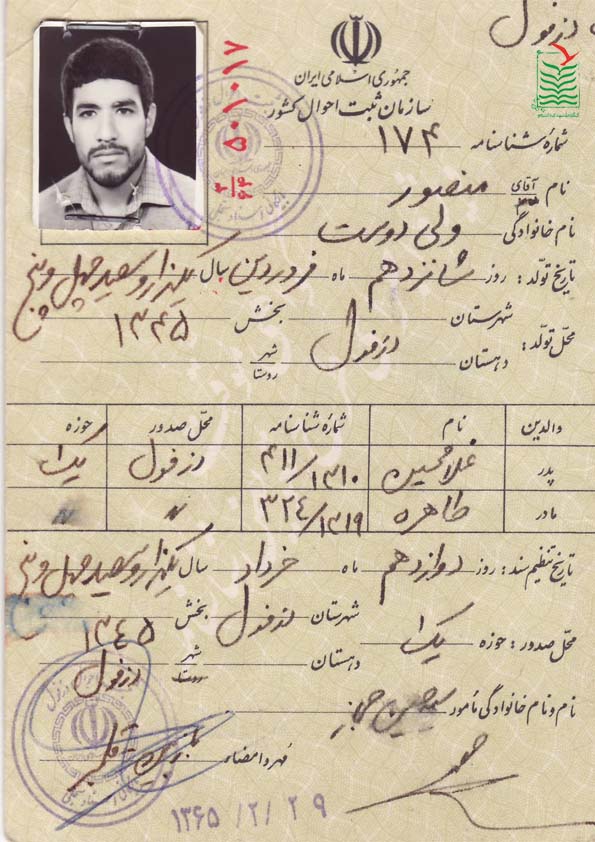 دزفول
جمهوری اسلامی ایران
سازمان ثبت احوال کشور
۵۰۱۰۱۷
شمارهٔ شناسنامه ۱۷۴
نام آقای منصور
نام خانوادگی ولی دوست
تاریخ تولد: روز شانزدهم ماه فروردین سال یکهزار و سیصد چهل و پنج
محل تولد: شهرستان دزفول بخش ۱۳۴۵
دهستان شهر روستا
والدین نام شمارهٔ شناسنامه محل صدور حوزه
پدر غلامحسین ۴۱۱/۱۳۱۰ دزفول یک
مادر طاهره ۳۲۴/۱۳۱۹ " "
تاریخ تنظیم سند: روز دوازدهم ماه خرداد سال یکهزار و سیصد چهل و پنج
محل صدور: حوزه یک شهرستان دزفول بخش ۱۳۴۵
دهستان شهر روستا دزفول
نام و نام خانوادگی مأمور سید حسین
مهر و امضاء
۱۳۶۵/۲/۲۹